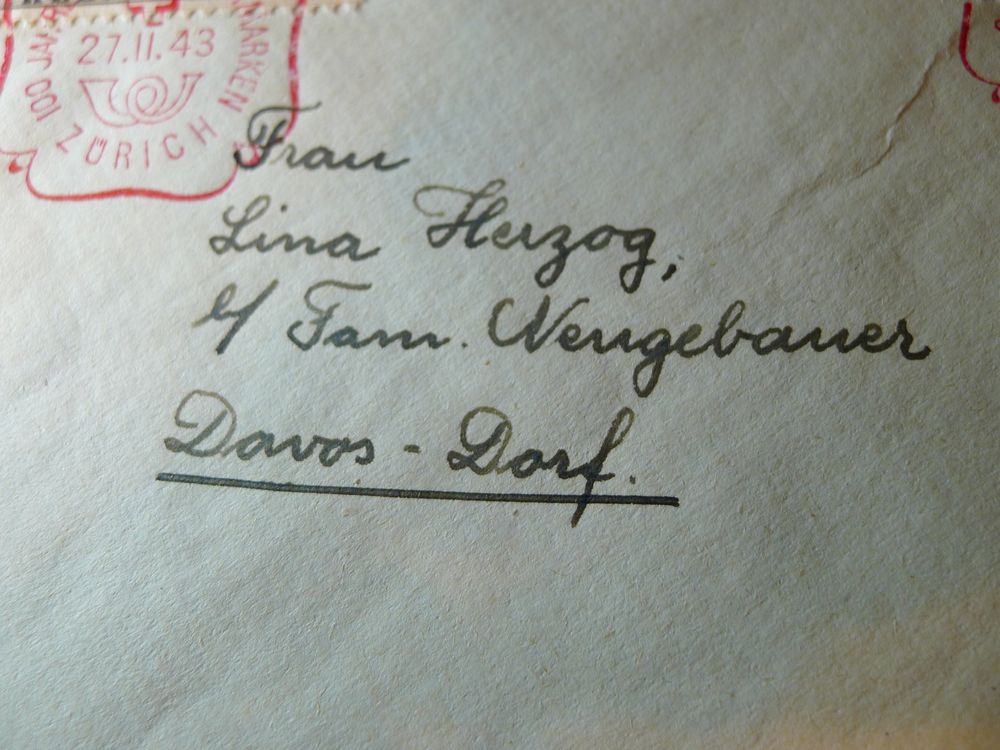 100 JAHR
MARKEN
27.II.43
ZÜRICH
Frau
Lina Herzog,
b/ Fam. Neugebauer
Davos - Dorf.